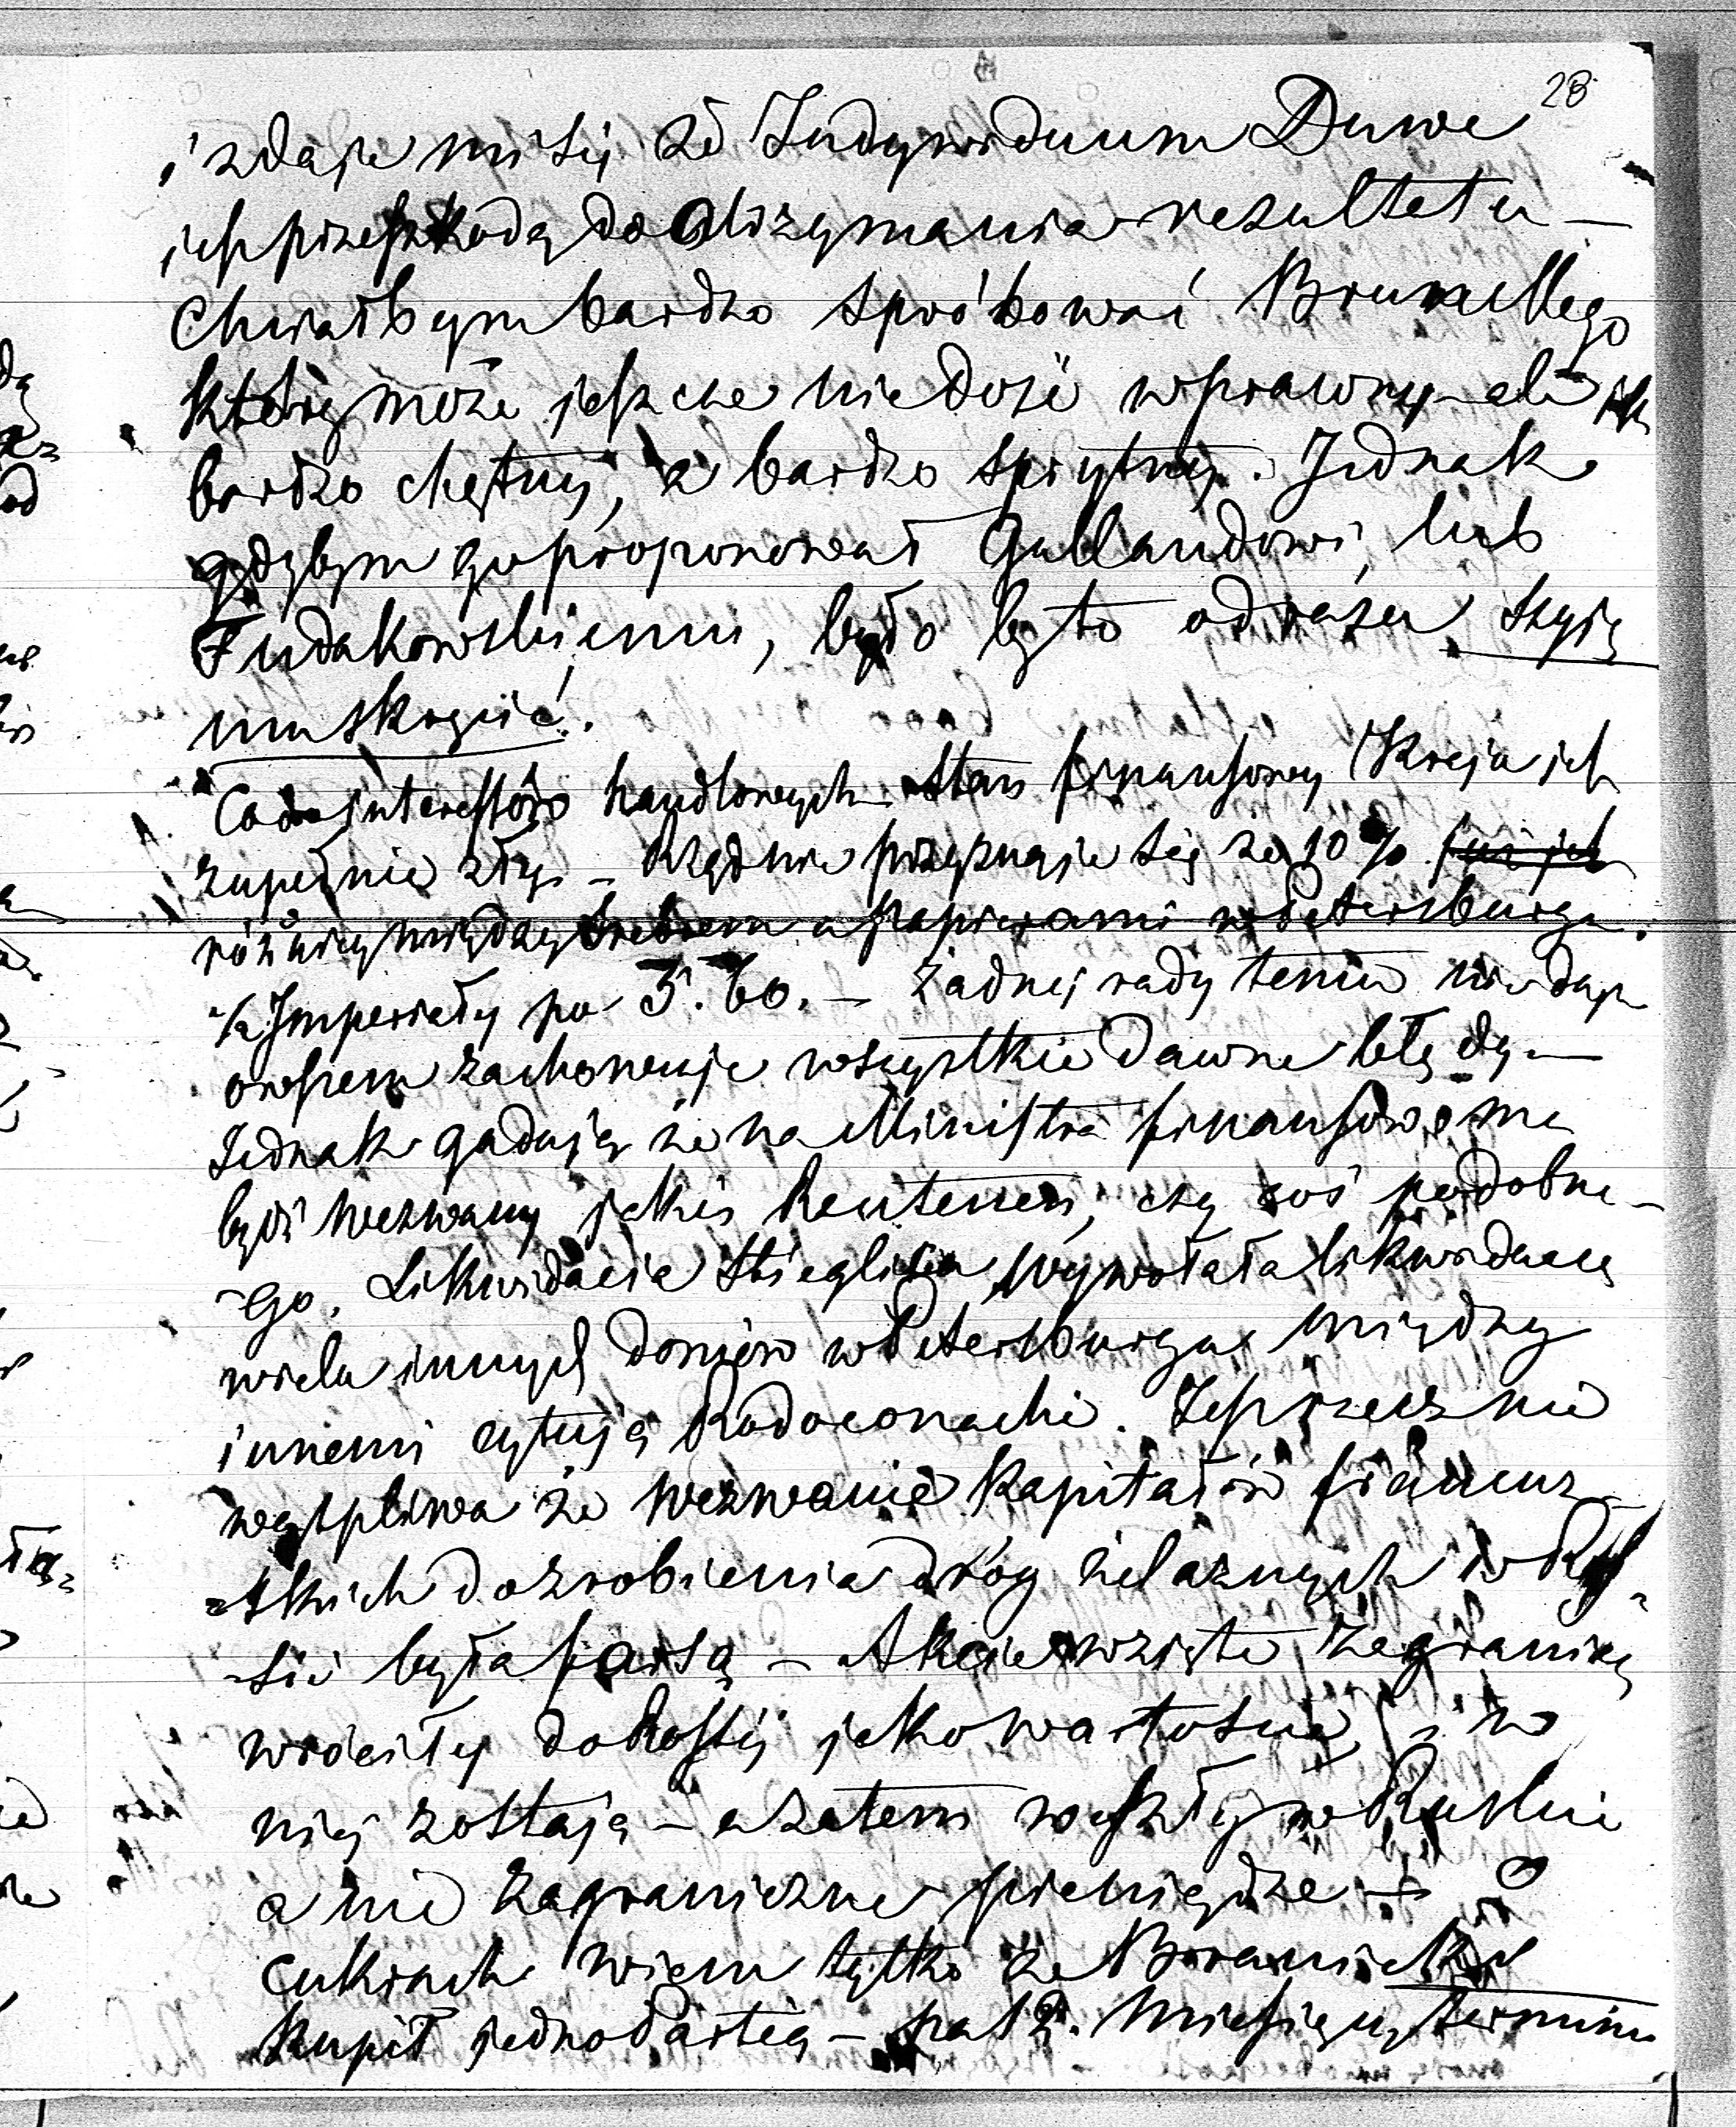 28
i zdaje mi się że Indywiduum Duwe
jest przeszkodą do otrzymania rezultatu —
Chciałbym bardzo spróbować Brunellego
który może jeszcze niedość wprawny – ale jest
bardzo chętny, a bardzo sprytny. Jednak
gdybym go proponował Gallandowi, lub
Fudakowskiemu, było by to od razu szyję
mu skręcić!.
Co do interessów handlowych stan finansowy Kraju jest
zupełnie zły. – Rząd nie przyznaje się że 10 %
różnicy między srebrem a papierami w Petersburgu.
½ Imperiały po 5. 60. — Żadnej rady temu nie daje
owszem zachowuje wszystkie dawne błędy —
Jednak gadają że na Ministra finansów ma
być wezwany jakiś Reutern, czy coś podobne-
-go. Likwidacia Stieglitza wywołała likwidacią
wielu innych domów w Petersburgu między
innemi cytują Rodoconachi. Jest rzecz nie
wątpliwa że wezwanie kapitałów francuz-
=skich do zrobienia dróg żelaznych w Ros-
-sii była farsą – Akcie wzięte zagranicą
wróciły do Rossij jako wartość, i w
niej zostają – a zatem weszły w Ruskie
a nie zagraniczne pieniądze – O
cukrach wiem tylko że Braniecki
kupił jedno Partią – na 12. Miesięczny termin